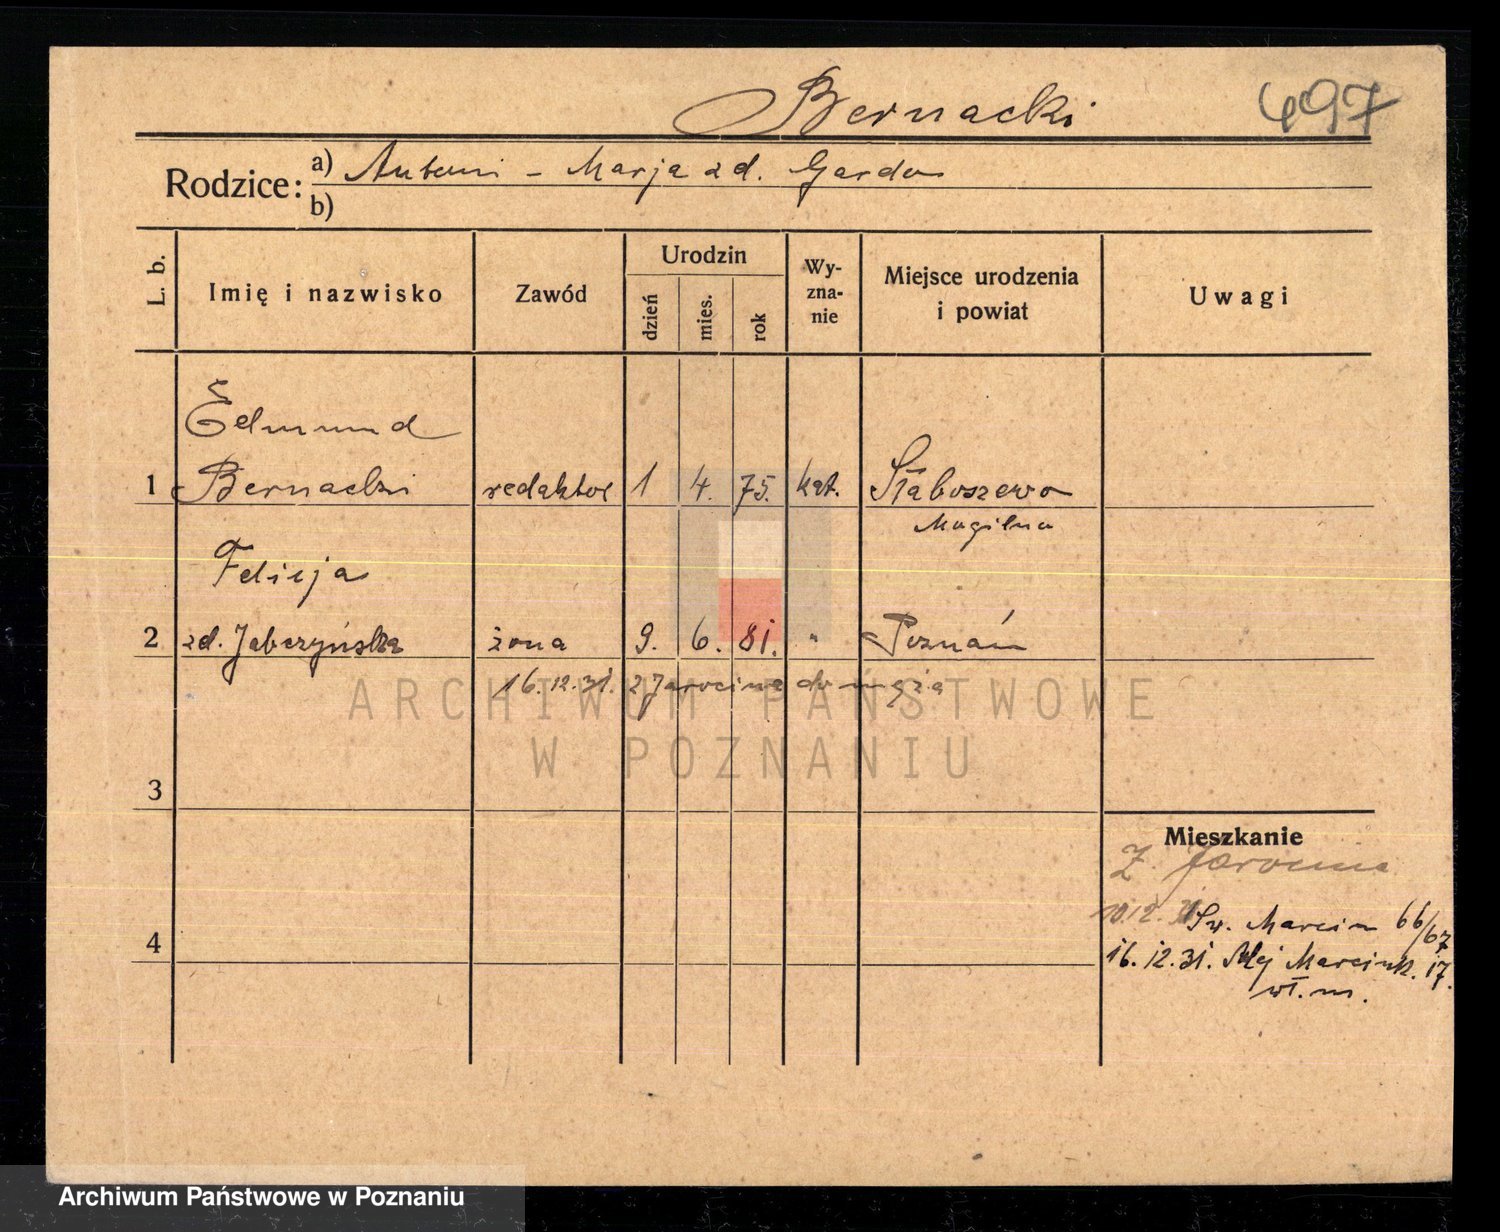 Bernacki 497
Rodzice: a) Antoni - Marja zd. Garda
b)
L. b. Imię i nazwisko Zawód Urodzin dzień mies. rok Wy-zna-nie Miejsce urodzenia i powiat Uwagi
Edmund
1 Bernacki redaktor 1 4. 75. kat. Słaboszewo
Mogilno
Felicja
2 zd. Jabczyńska żona 9. 6. 81. " Poznań
16.12.31. z Jarocina do męża
ARCHIWUM PAŃSTWOWE
W POZNANIU
3
Mieszkanie
Z Jarocina
10.12.31 Św. Marcin 66/67
4
16.12.31. Alej Marcink. 17.
wł. m.
Archiwum Państwowe w Poznaniu